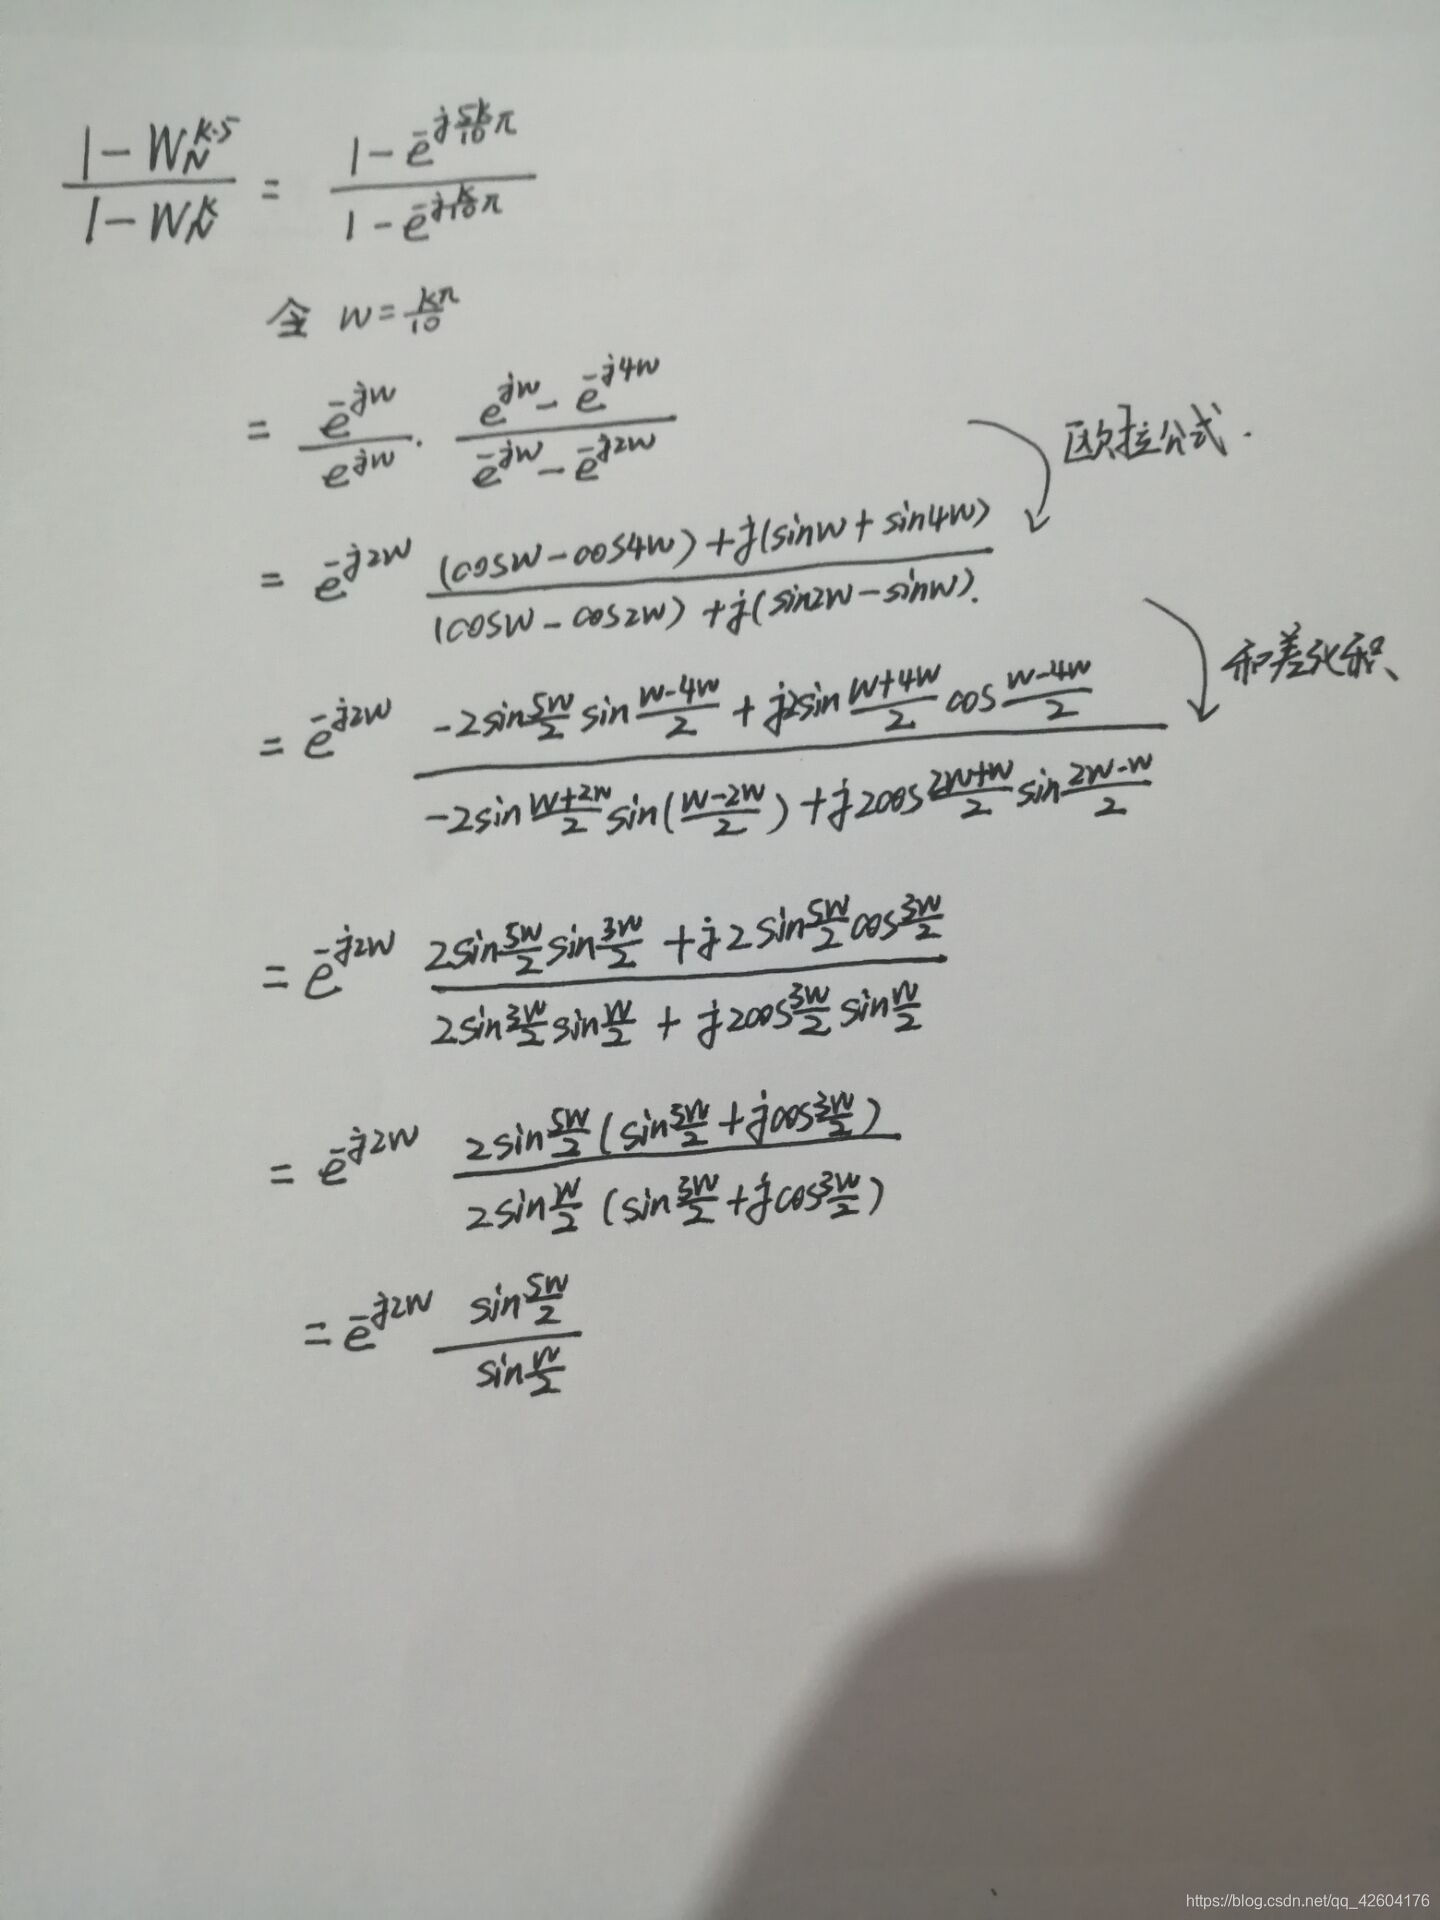 \frac{1-W_N^{k \cdot 5}}{1-W_N^k} = \frac{1-e^{-j\frac{5k}{10}\pi}}{1-e^{-j\frac{k}{10}\pi}}
令 w=\frac{k\pi}{10}
= \frac{e^{-jw}}{e^{jw}} \cdot \frac{e^{jw}-e^{-j4w}}{e^{-jw}-e^{-j2w}}
欧拉公式.
= e^{-j2w} \frac{(cosw-cos4w)+j(sinw+sin4w)}{(cosw-cos2w)+j(sin2w-sinw).}
和差化积、
= e^{-j2w} \frac{-2sin\frac{5w}{2}sin\frac{w-4w}{2}+j2sin\frac{w+4w}{2}cos\frac{w-4w}{2}}{-2sin\frac{w+2w}{2}sin(\frac{w-2w}{2})+j2cos\frac{2w+w}{2}sin\frac{2w-w}{2}}
= e^{-j2w} \frac{2sin\frac{5w}{2}sin\frac{3w}{2}+j2sin\frac{5w}{2}cos\frac{3w}{2}}{2sin\frac{3w}{2}sin\frac{w}{2}+j2cos\frac{3w}{2}sin\frac{w}{2}}
= e^{-j2w} \frac{2sin\frac{5w}{2}(sin\frac{3w}{2}+jcos\frac{3w}{2})}{2sin\frac{w}{2}(sin\frac{3w}{2}+jcos\frac{3w}{2})}
= e^{-j2w} \frac{sin\frac{5w}{2}}{sin\frac{w}{2}}
https://blog.csdn.net/qq_42604176